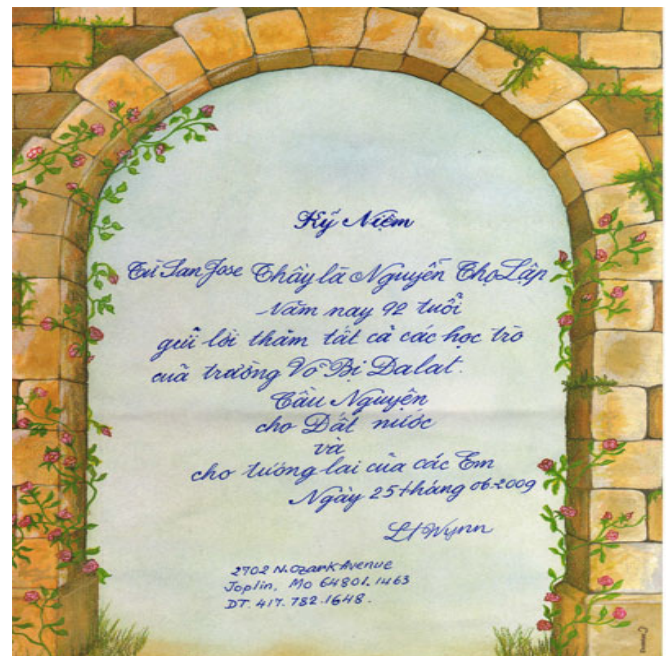 Kỷ Niệm
Từ San Jose Thầy là Nguyễn Thọ Lập
Năm nay 92 tuổi
gửi lời thăm tất cả các học trò
của trường Võ Bị Dalat.
Cầu Nguyện
cho Đất nước
và
cho tương lai của các Em
Ngày 25 tháng 06-2009
Lt Wynn
2702 N. Ozark Avenue
Joplin, Mo 64801.1463
DT. 417. 782.1648.